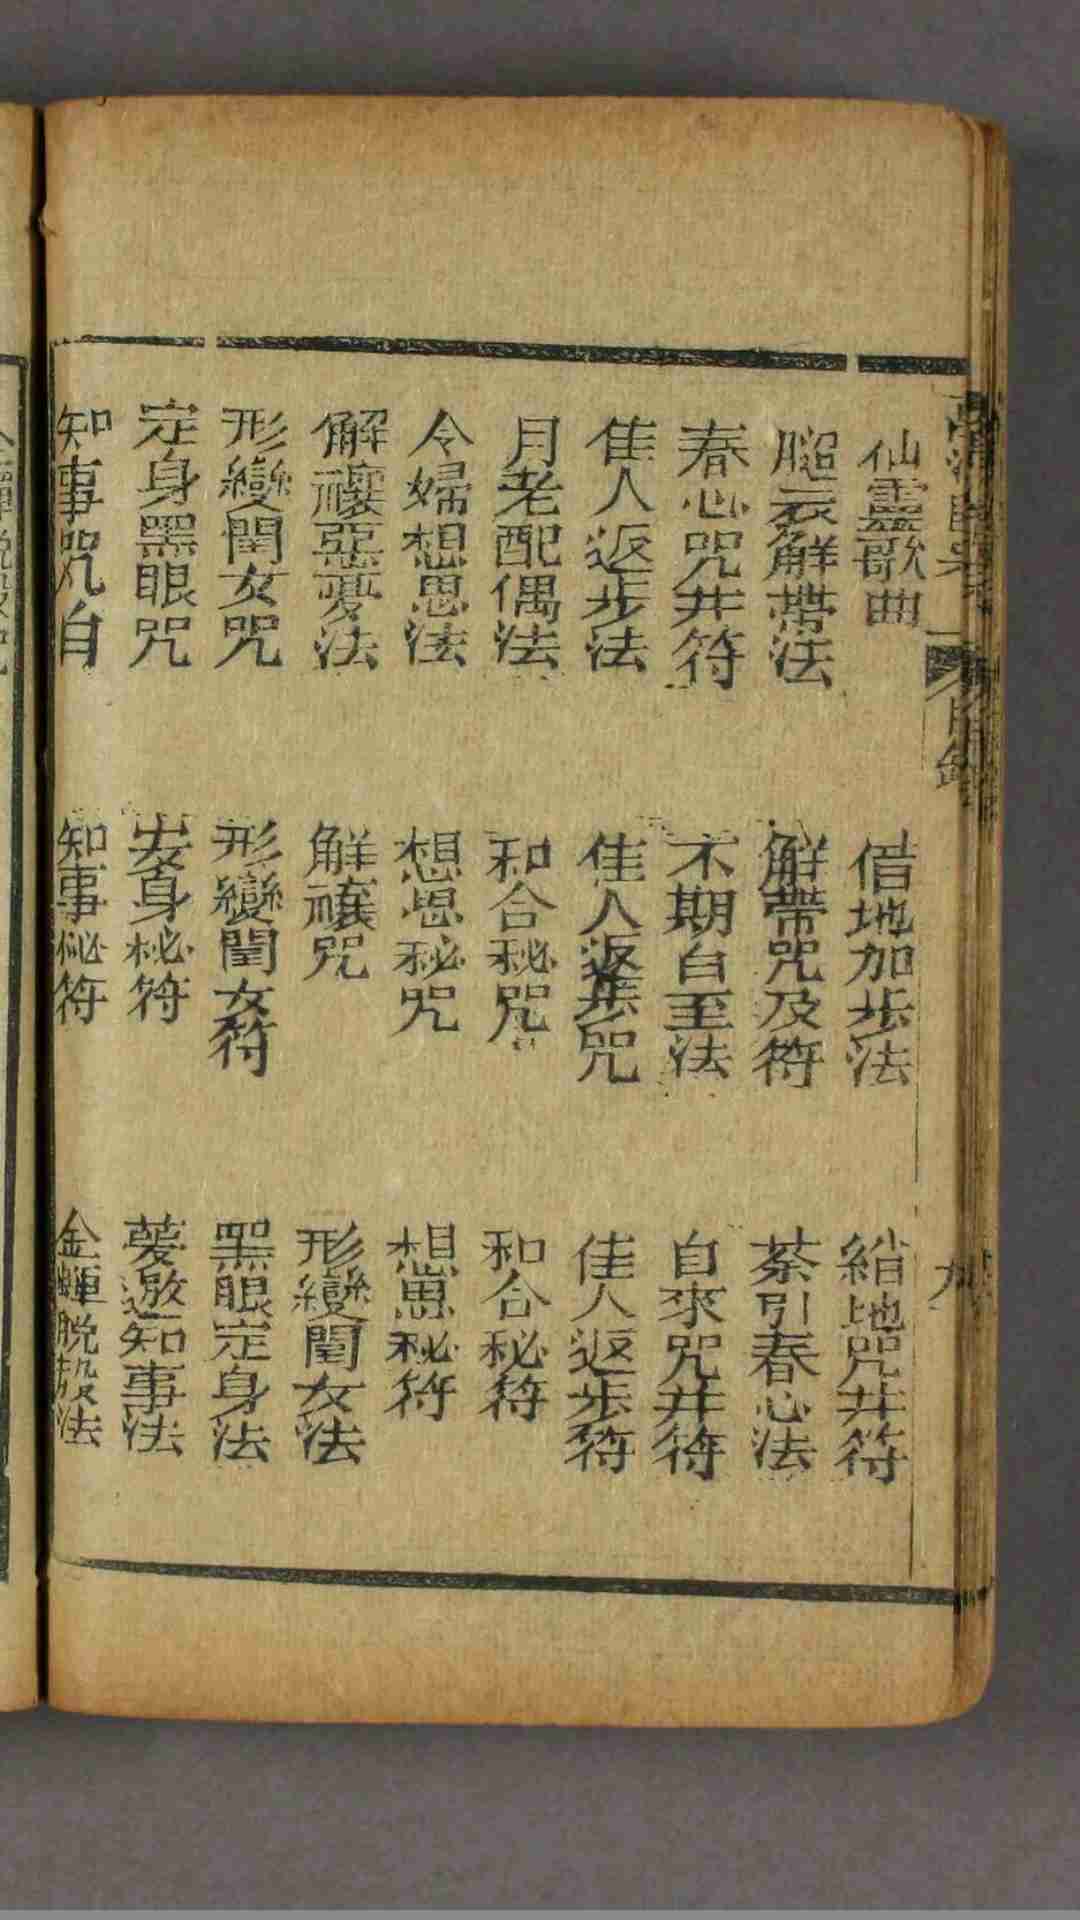 仙靈歌曲
借地加步法
縮地咒并符
腿衣解帶法
解帶咒及符
茶引春心法
春心咒并符
不期自至法
自來咒并符
佳人返步法
佳人返步咒
佳人返步符
月老配偶法
和合秘咒
和合秘符
令婦想思法
想思秘咒
想思秘符
解禳惡憂法
解禳咒
形變閨女法
形變閨女咒
形變閨女符
黑眼定身法
定身黑眼咒
安身秘符
知事法
知事咒
知事秘符
金蟬脫殼法
目錄
九